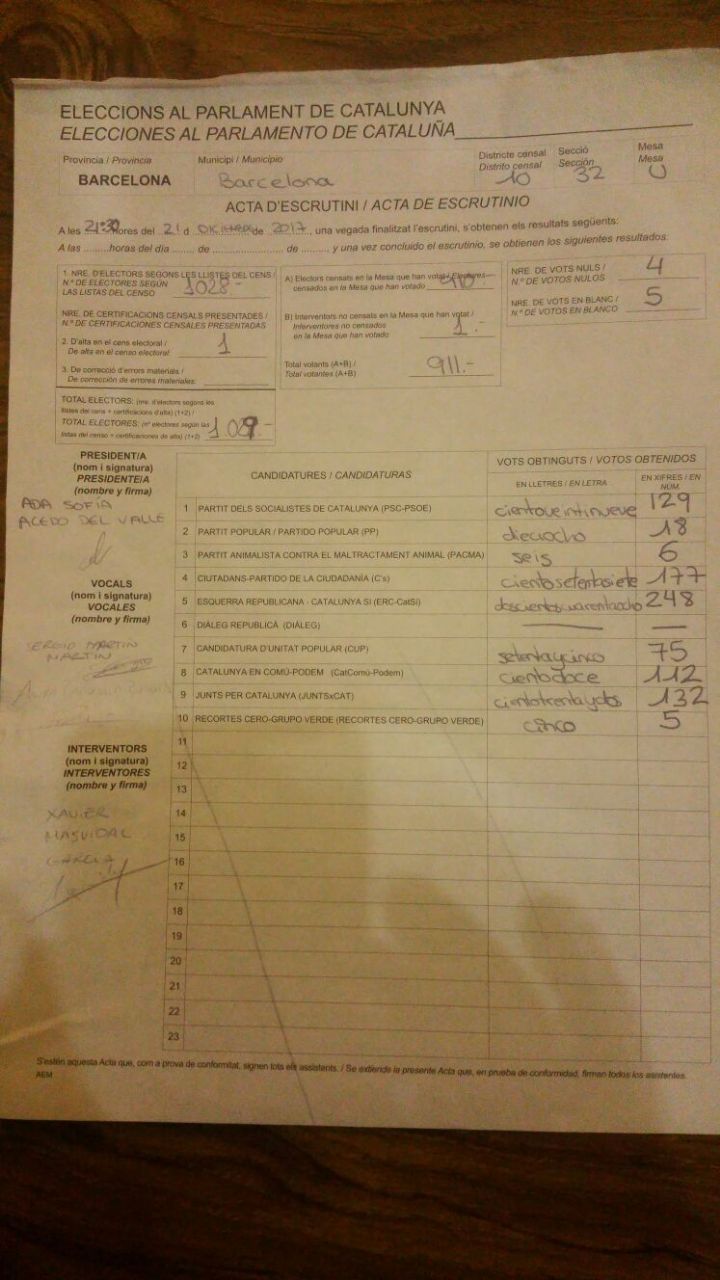 ELECCIONS AL PARLAMENT DE CATALUNYA
ELECCIONES AL PARLAMENTO DE CATALUÑA
Província / Provincia Municipi / Municipio Districte censal Secció Mesa
Distrito censal Sección Mesa
BARCELONA Barcelona 10 32 U
ACTA D'ESCRUTINI / ACTA DE ESCRUTINIO
A les 21:30 hores del 21 d de 2017, una vegada finalitzat l'escrutini, s'obtenen els resultats següents:
A las ........horas del día ....... de .................... de ......... y una vez concluido el escrutinio, se obtienen los siguientes resultados:
1. NRE. D'ELECTORS SEGONS LES LLISTES DEL CENS /
N.º DE ELECTORES SEGÚN
LAS LISTAS DEL CENSO 1028.-
NRE. DE CERTIFICACIONS CENSALS PRESENTADES /
N.º DE CERTIFICACIONES CENSALES PRESENTADAS
2. D'alta en el cens electoral /
De alta en el censo electoral 1
3. De correcció d'errors materials /
De corrección de errores materiales:
TOTAL ELECTORS: (nre. d'electors segons les
llistes del cens + certificacions d'alta) (1+2) /
TOTAL ELECTORES: (nº electores según las
listas del censo + certificaciones de alta) (1+2) 1.029.-
A) Electors censats en la Mesa que han votat / Electores
censados en la Mesa que han votado 910.-
B) Interventors no censats en la Mesa que han votat /
Interventores no censados
en la Mesa que han votado 1.-
Total votants (A+B) /
Total votantes (A+B) 911.-
NRE. DE VOTS NULS /
N.º DE VOTOS NULOS 4
NRE. DE VOTS EN BLANC /
N.º DE VOTOS EN BLANCO 5
PRESIDENT/A
(nom i signatura)
PRESIDENTE/A
(nombre y firma)
ADA SOFIA
ACEDO DEL VALLE
VOCALS
(nom i signatura)
VOCALES
(nombre y firma)
SERGIO MARTIN
MARTIN
INTERVENTORS
(nom i signatura)
INTERVENTORES
(nombre y firma)
XAVIER
MASVIDAL
GARCIA
CANDIDATURES / CANDIDATURAS VOTS OBTINGUTS / VOTOS OBTENIDOS
EN LLETRES / EN LETRA EN XIFRES / EN NÚM.
1 PARTIT DELS SOCIALISTES DE CATALUNYA (PSC-PSOE) cientoveintinueve 129
2 PARTIT POPULAR / PARTIDO POPULAR (PP) dieciocho 18
3 PARTIT ANIMALISTA CONTRA EL MALTRACTAMENT ANIMAL (PACMA) seis 6
4 CIUTADANS-PARTIDO DE LA CIUDADANÍA (C's) cientosetentasiete 177
5 ESQUERRA REPUBLICANA - CATALUNYA SÍ (ERC-CatSí) doscientoscuarentaocho 248
6 DIÀLEG REPUBLICÀ (DIÀLEG) — —
7 CANDIDATURA D'UNITAT POPULAR (CUP) setentaycinco 75
8 CATALUNYA EN COMÚ-PODEM (CatComú-Podem) cientodoce 112
9 JUNTS PER CATALUNYA (JUNTSxCAT) cientotrentaydos 132
10 RECORTES CERO-GRUPO VERDE (RECORTES CERO-GRUPO VERDE) cinco 5
11
12
13
14
15
16
17
18
19
20
21
22
23
S'estén aquesta Acta que, com a prova de conformitat, signen tots els assistents. / Se extiende la presente Acta que, en prueba de conformidad, firman todos los asistentes.
AEM